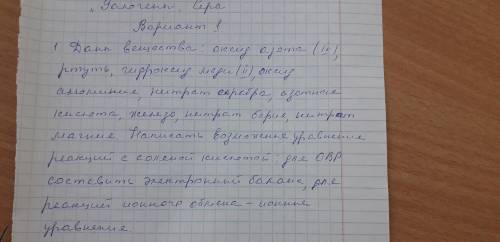 "Галогены", сера
Вариант 1
1 Даны вещества: оксид азота (IV),
ртуть, гидроксид меди (II), оксид
алюминия, нитрат серебра, азотная
кислота, железо, нитрат бария, нитрат
магния. Написать возможные уравнения
реакций с соляной кислотой: для ОВР
составить электронный баланс, для
реакций ионного обмена – ионные
уравнения.